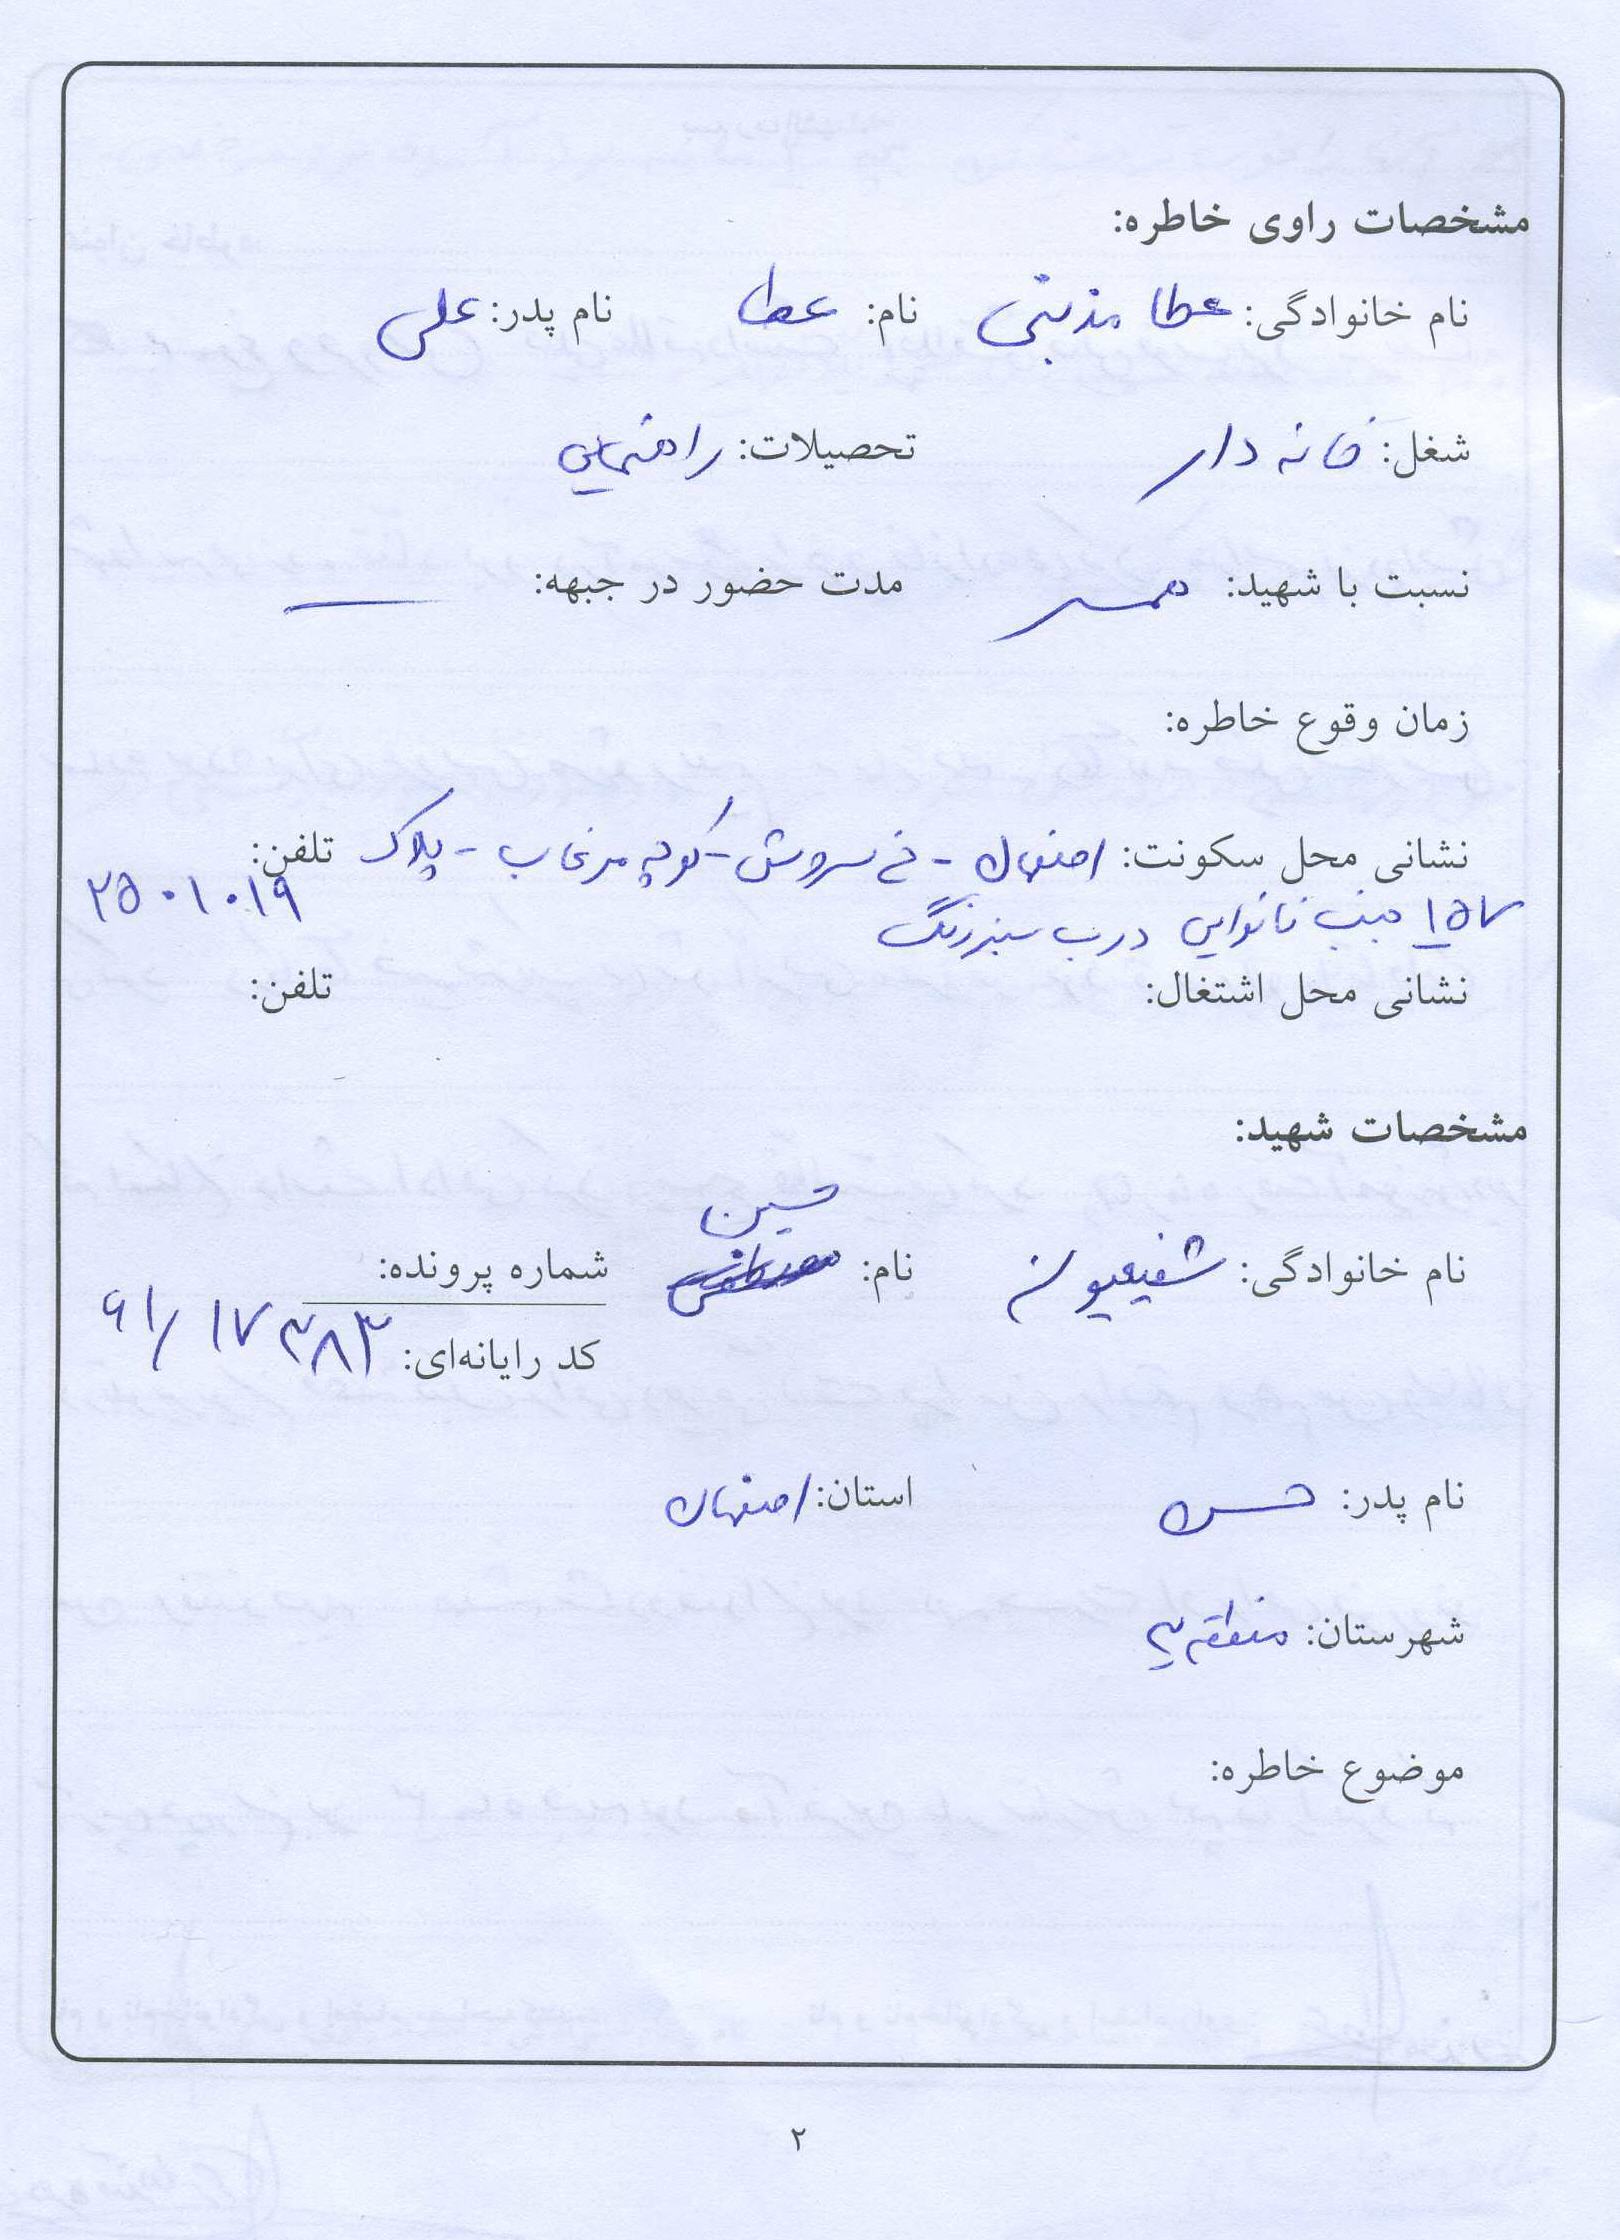 مشخصات راوی خاطره:
نام خانوادگی: عطا مذنبی نام: عطا نام پدر: علی
شغل: خانه دار تحصیلات: راهنمایی
نسبت با شهید: همسر مدت حضور در جبهه: —
زمان وقوع خاطره:
نشانی محل سکونت: اصفهان - خ سروش - کوچه مرغاب - پلاک تلفن:
۱۵۷ جنب نانوایی درب سبزرنگ ۲۵۰۱۰۱۹
نشانی محل اشتغال: تلفن:
مشخصات شهید:
حسین
نام خانوادگی: شفیعیون نام: شماره پرونده:
کد رایانه‌ای: ۶۱/۱۷۳۸۳
نام پدر: حسن استان: اصفهان
شهرستان: منطقه
موضوع خاطره:
۲